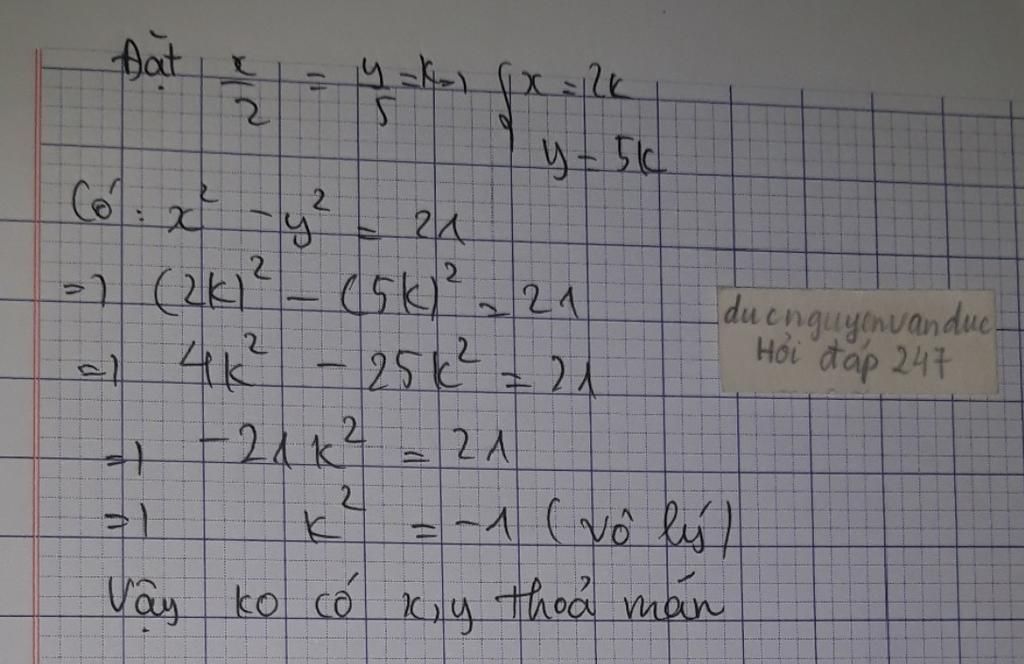 Đặt x/2 = y/5 = k => { x = 2k
y = 5k
Có : x² - y² = 21
=> (2k)² - (5k)² = 21
=> 4k² - 25k² = 21
=> -21k² = 21
=> k² = -1 (vô lý)
Vậy ko có x, y thoả mãn
ducnguyenvanduc
Hỏi đáp 247